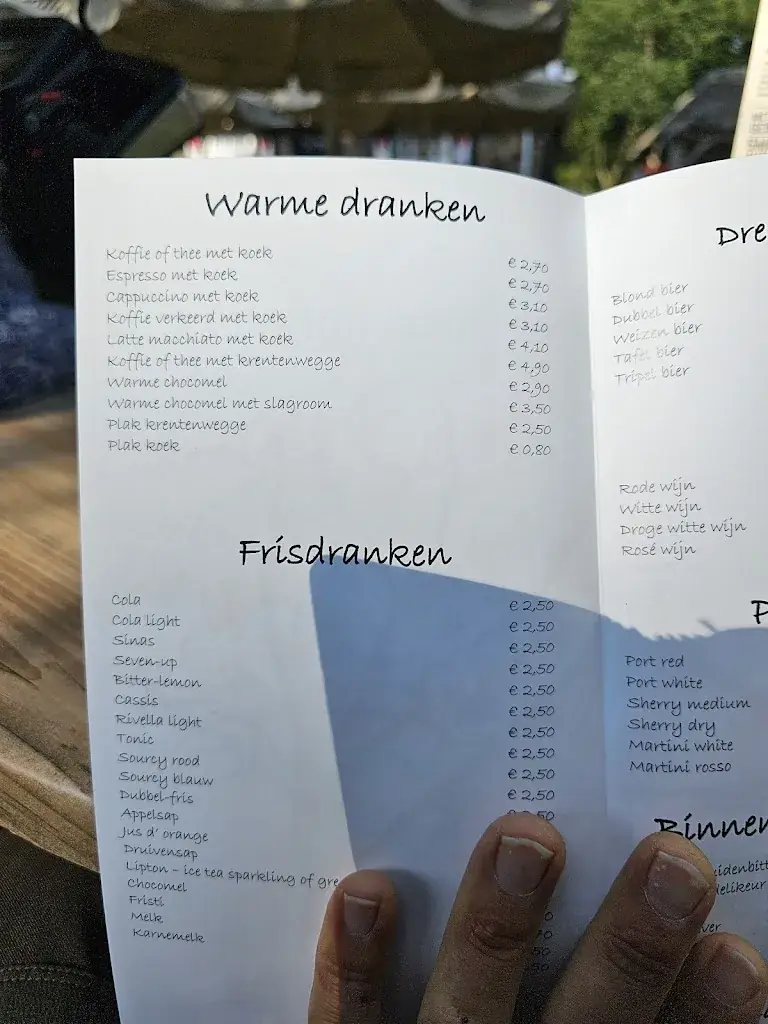 Warme dranken
Koffie of thee met koek € 2,70
Espresso met koek € 2,70
Cappuccino met koek € 3,10
Koffie verkeerd met koek € 3,10
Latte macchiato met koek € 4,10
Koffie of thee met krentenwegge € 4,90
Warme chocomel € 2,90
Warme chocomel met slagroom € 3,50
Plak krentenwegge € 2,50
Plak koek € 0,80
Frisdranken
Cola € 2,50
Cola light € 2,50
Sinas € 2,50
Seven-up € 2,50
Bitter-lemon € 2,50
Cassis € 2,50
Rivella light € 2,50
Tonic € 2,50
Sourcy rood € 2,50
Sourcy blauw € 2,50
Dubbel-fris
Appelsap
Jus d' orange
Druivensap
Lipton - ice tea sparkling of gre
Chocomel
Fristi
Melk
Karnemelk
Dre
Blond bier
Dubbel bier
Weizen bier
Tafel bier
Tripel bier
Rode wijn
Witte wijn
Droge witte wijn
Rosé wijn
P
Port red
Port white
Sherry medium
Sherry dry
Martini white
Martini rosso
Binnen
uidenbitt
delikeur
ver